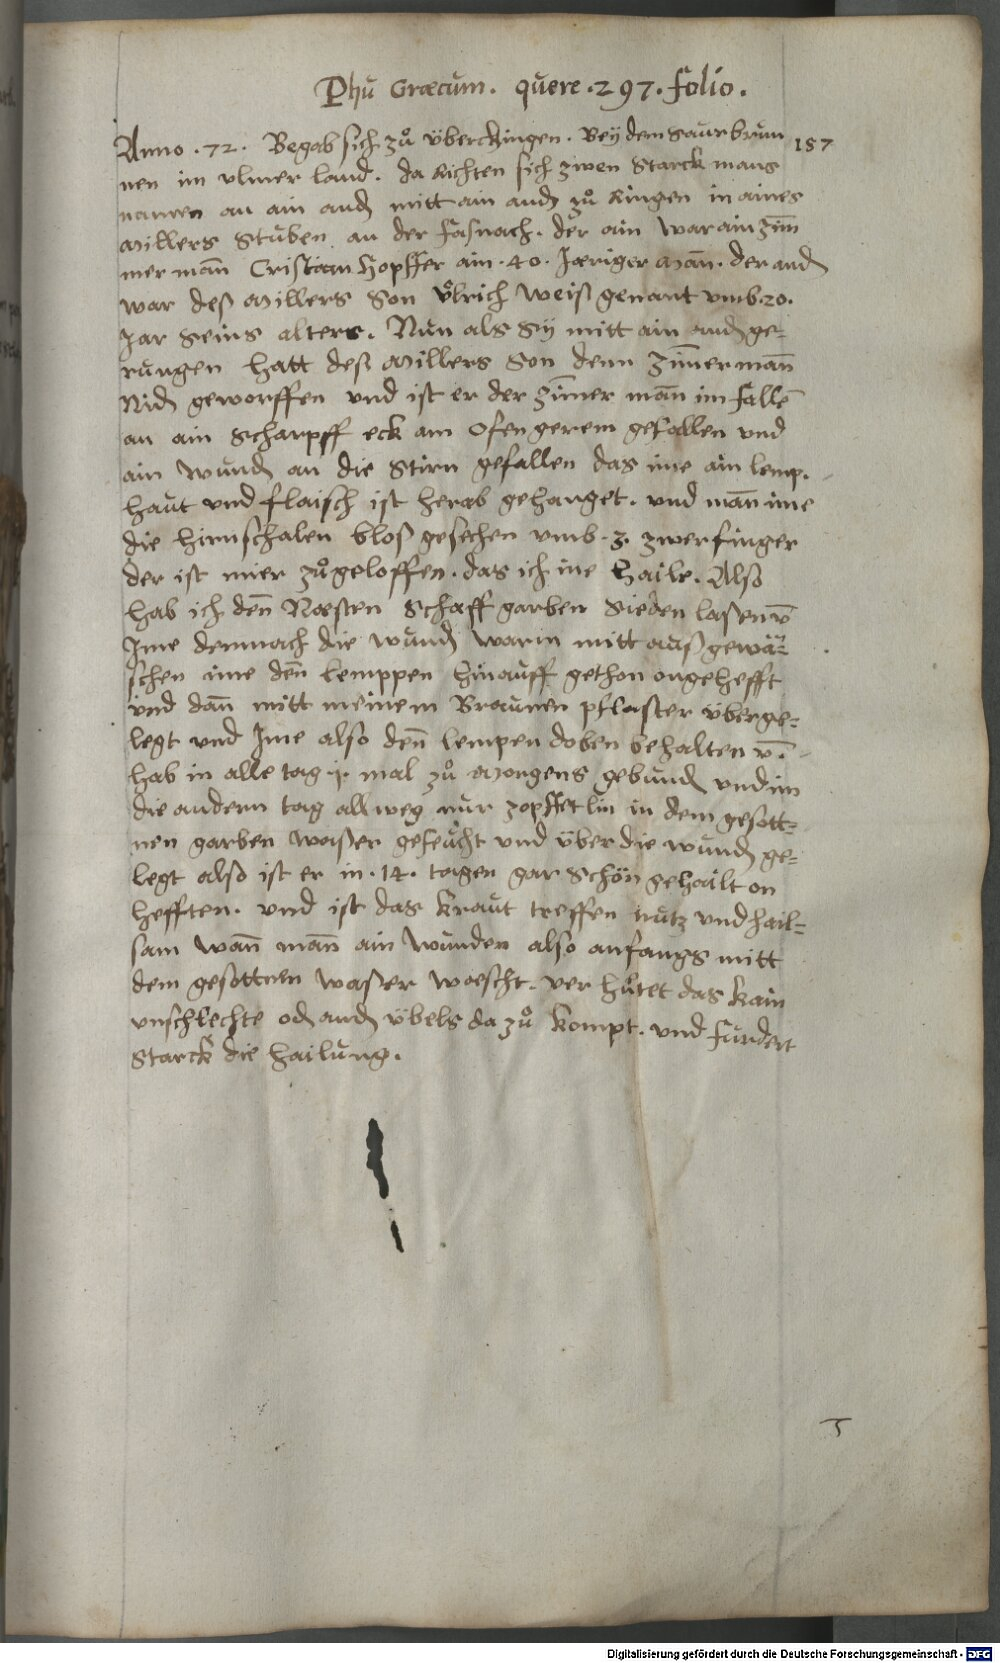 Phu Græcum. quere .297. folio.
157
Anno .72. Begab sich zů überckingen. Bey dem Saurbrun
nen im ulmer land. da Richten sich zwen Starck mans
namen an ain and mitt ain and zů Ringen in aines
Millers Stuben an der fasnach. der ain war ain Zim̄
merman̄ Cristian Hopffer ain .40. Jæriger Man̄. der and
war deß Millers Son Ůlrich Weiß genant vmb .20.
Jar seins alters. Nun als Sy mitt ain and ge-
rungen hatt deß Millers Son denn Zim̄erman̄
Nid geworffen vnd ist er der Zim̄er man̄ im fallē
an ain Scharpff eck am Ofen gerem gefallen vnd
ain wund an die Stirn gefallen das ime ain lemp.
haut vnd flaisch ist herab gehanget. vnd man̄ ime
die hirnschalen bloß gesechen vmb .3. zwerfinger
der ist mier zů geloffen. das ich ine haile. Also
hab ich den̄ Næsten Schaffgarben Sieden lasen v̄
Jme demnach die wund warm mitt auß gewä-
schen ime den̄ lemppen hinauff gethon ongehefft
vnd dan̄ mitt meinem Braunen pflaster überge-
legt vnd Jme also den̄ lempen doben behalten v̄.
hab in alle tag .j. mal zů Morgens gebund vnd im
die andern tag allweg nur zopffetlin in dem gesott-
nen garben waßer gefeucht vnd über die wund ge-
legt also ist er in .14. tagen gar schön gehailt on
hefften. vnd ist das kraut treffen nutz vnd hail-
sam wan̄ man̄ ain wunden also anfangs mitt
dem gesottnen waßer wæscht. ver hůtet das kain
vnschlechte od and übels da zů kompt. vnd furdert
Starck die hailung.
Digitalisierung gefördert durch die Deutsche Forschungsgemeinschaft - DFG